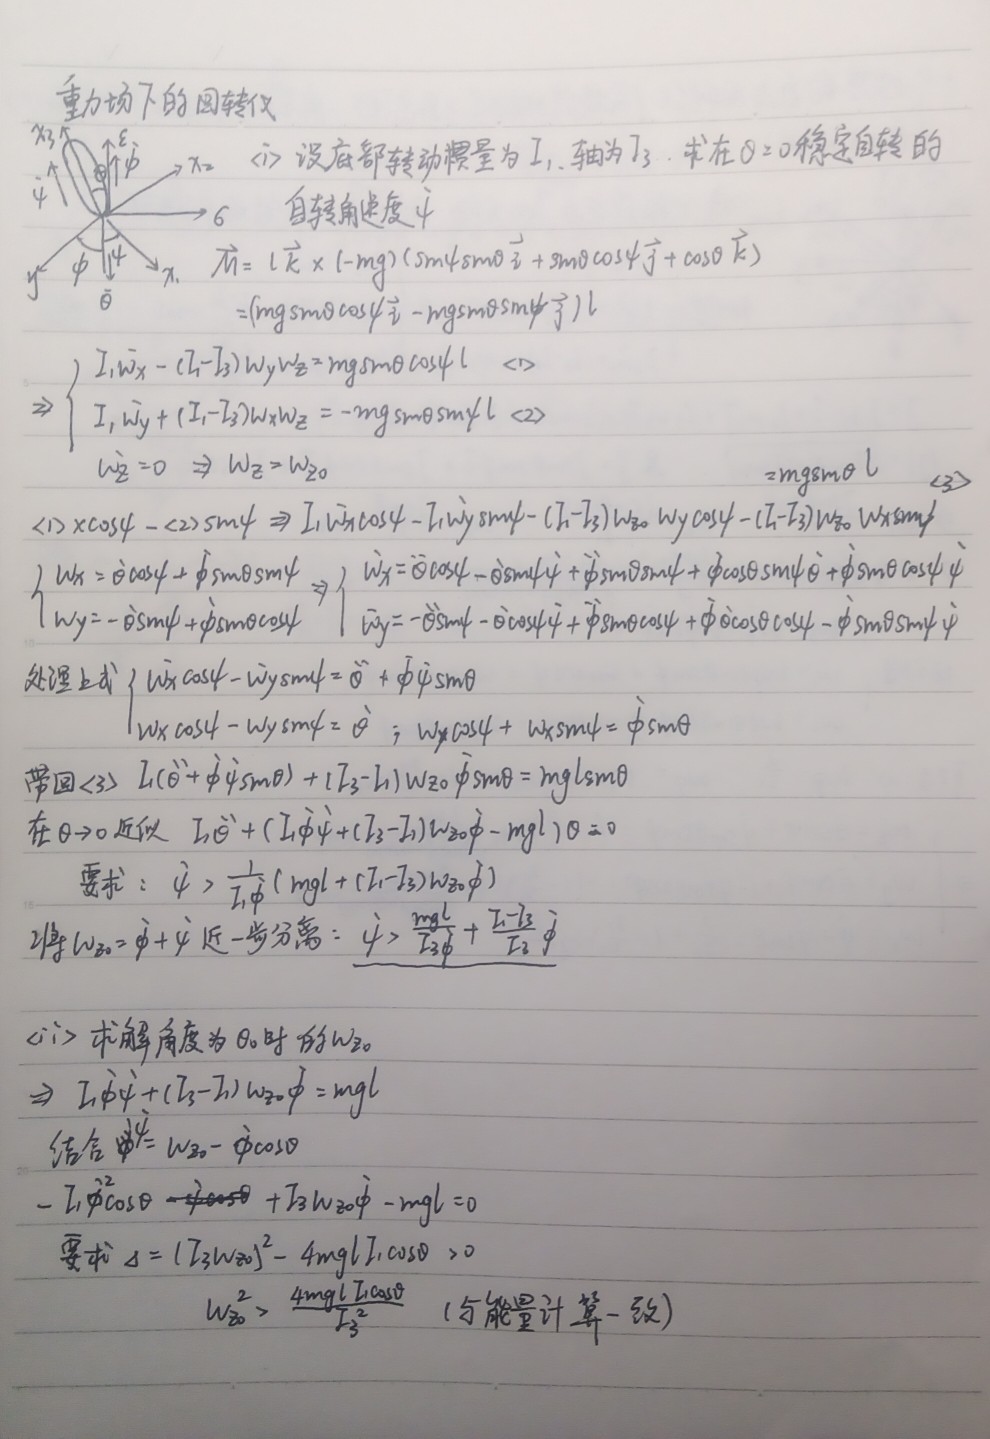 重力场下的回转仪
x₃ ε φ̇ x₂ ψ̇ θ 6 y φ ψ x₁ θ̇
<i> 设底部转动惯量为 I₁、轴为 I₃. 求在θ=0稳定自转的
自转角速度 ψ̇
M⃗ = l k⃗ × (-mg)(sinψsinθ i⃗ + sinθcosψ j⃗ + cosθ k⃗)
=(mgsinθcosψ i⃗ - mgsinθsinψ j⃗) l
⇒ { I₁ẇx - (I₁-I₃)wywz = mgsinθcosψ l <1>
I₁ẇy + (I₁-I₃)wxwz = -mgsinθsinψ l <2>
ẇz = 0 ⇒ wz = wz₀
=mgsinθ l <3>
<1>×cosψ - <2>sinψ ⇒ I₁ẇxcosψ - I₁ẇysinψ - (I₁-I₃)wz₀ wycosψ - (I₁-I₃)wz₀ wxsinψ
{ wx = θ̇cosψ + φ̇sinθsinψ ⇒ { ẇx = θ̈cosψ - θ̇sinψψ̇ + φ̈sinθsinψ + φ̇cosθsinψθ̇ + φ̇sinθcosψψ̇
wy = -θ̇sinψ + φ̇sinθcosψ ẇy = -θ̈sinψ - θ̇cosψψ̇ + φ̈sinθcosψ + φ̇θ̇cosθcosψ - φ̇sinθsinψψ̇
处理上式 { ẇxcosψ - ẇysinψ = θ̈ + φ̇ψ̇sinθ
wxcosψ - wysinψ = θ̇ ; wycosψ + wxsinψ = φ̇sinθ
带回<3> I₁(θ̈ + φ̇ψ̇sinθ) + (I₃-I₁)wz₀φ̇sinθ = mglsinθ
在θ→0近似 I₁θ̈ + (I₁φ̇ψ̇ + (I₃-I₁)wz₀φ̇ - mgl)θ = 0
要求: ψ̇ > 1/(I₁φ̇) (mgl + (I₁-I₃)wz₀φ̇)
将 wz₀ = φ̇ + ψ̇ 近一步分离: ψ̇ > mgl/(I₃φ̇) + (I₁-I₃)/I₃ φ̇
<ii> 求解角度为θ₀时的wz₀
⇒ I₁φ̇ψ̇ + (I₃-I₁)wz₀φ̇ = mgl
结合 ψ̇ = wz₀ - φ̇cosθ
- I₁φ̇²cosθ + I₃wz₀φ̇ - mgl = 0
要求 Δ = (I₃wz₀)² - 4mglI₁cosθ > 0
wz₀² > 4mglI₁cosθ/I₃² (与能量计算一致)